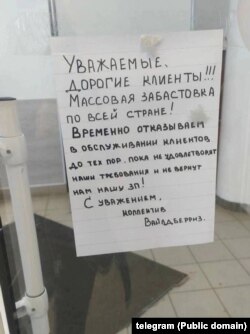 Уважаемые,
дорогие клиенты!!!
Массовая забастовка
по всей стране!
Временно отказываем
в обслуживании клиентов
до тех пор, пока не удовлетворят
наши требования и не вернут
нам нашу ЗП!
С уважением,
коллектив
Вайлдберриз.
telegram (Public domain)